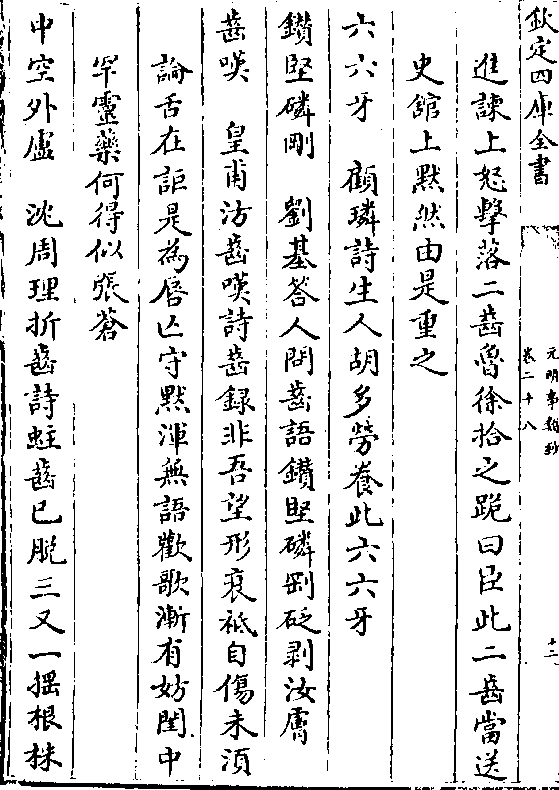 欽定四庫全書
元明事類鈔
卷二十八
十二
進諫上怒擊落二齒魯徐拾之跪曰臣此二齒當送
史館上默然由是重之
六六牙 顧璘詩生人胡多勞養此六六牙
鑽堅磷剛 劉基答人問齒語鑽堅磷剛砭剥汝膚
齒嘆 皇甫汸齒嘆詩齒録非吾望形衰祗自傷未須
論舌在詎是為唇亡守默渾無語歡歌漸有妨閨中
罕靈藥何得似張蒼
中空外盧 沈周理折齒詩蛀齒已脱三又一揺根株